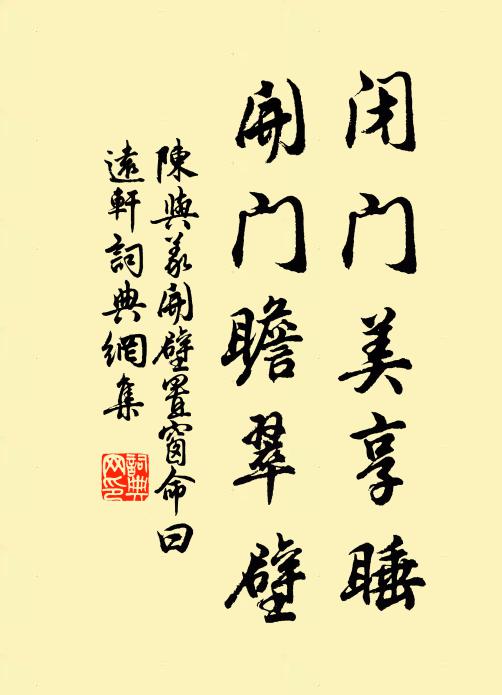 闭门美享睡
開门瞻翠壁
陳與義開壁置窗命曰
遠軒詞典網集
詞典网印